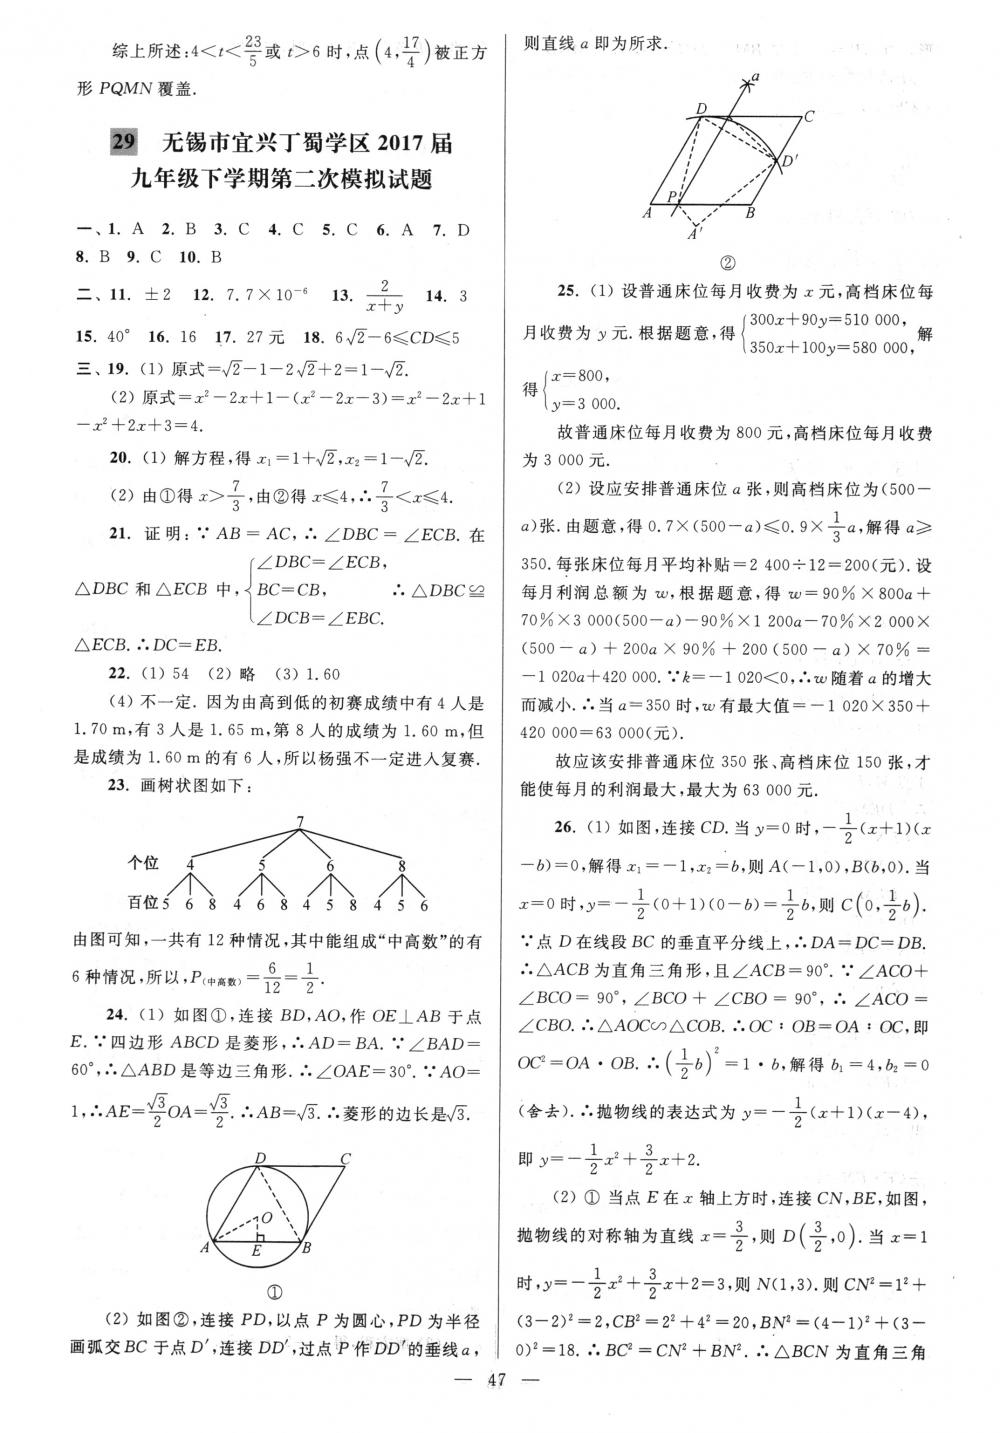 综上所述:4<t<23/5或 t>6 时,点(4,17/4)被正方
形 PQMN 覆盖.
29 无锡市宜兴丁蜀学区 2017 届
九年级下学期第二次模拟试题
一、1. A 2. B 3. C 4. C 5. C 6. A 7. D
8. B 9. C 10. B
二、11. ±2 12. 7.7×10⁻⁶ 13. 2/(x+y) 14. 3
15. 40° 16. 16 17. 27 元 18. 6√2-6≤CD≤5
三、19. (1) 原式=√2-1-2√2+2=1-√2.
(2) 原式=x²-2x+1-(x²-2x-3)=x²-2x+1
-x²+2x+3=4.
20. (1) 解方程,得 x₁=1+√2,x₂=1-√2.
(2) 由①得 x>7/3,由②得 x≤4,∴7/3<x≤4.
21. 证明:∵AB=AC,∴∠DBC=∠ECB. 在
△DBC 和△ECB 中,{∠DBC=∠ECB, BC=CB, ∠DCB=∠EBC. ∴△DBC≌
△ECB.∴DC=EB.
22. (1) 54 (2) 略 (3) 1.60
(4) 不一定. 因为由高到低的初赛成绩中有 4 人是
1.70 m,有 3 人是 1.65 m,第 8 人的成绩为 1.60 m,但
是成绩为 1.60 m 的有 6 人,所以杨强不一定进入复赛.
23. 画树状图如下:
7
个位 4 5 6 8
百位 5 6 8 4 6 8 4 5 8 4 5 6
由图可知,一共有 12 种情况,其中能组成“中高数”的有
6 种情况,所以,P(中高数)=6/12=1/2.
24. (1) 如图①,连接 BD,AO,作 OE⊥AB 于点
E.∵四边形 ABCD 是菱形,∴AD=BA.∵∠BAD=
60°,∴△ABD 是等边三角形.∴∠OAE=30°.∵AO=
1,∴AE=√3/2OA=√3/2.∴AB=√3.∴菱形的边长是√3.
D C
O
A E B
①
(2) 如图②,连接 PD,以点 P 为圆心,PD 为半径
画弧交 BC 于点 D′,连接 DD′,过点 P 作 DD′的垂线 a,
则直线 a 即为所求.
a
D C
D′
P
A B
A′
②
25. (1) 设普通床位每月收费为 x 元,高档床位每
月收费为 y 元. 根据题意,得{300x+90y=510 000, 350x+100y=580 000, 解
得{x=800, y=3 000.
故普通床位每月收费为 800 元,高档床位每月收费
为 3 000 元.
(2) 设应安排普通床位 a 张,则高档床位为(500-
a)张. 由题意,得 0.7×(500-a)≤0.9×1/3a,解得 a≥
350. 每张床位每月平均补贴=2 400÷12=200(元). 设
每月利润总额为 w,根据题意,得 w=90%×800a+
70%×3 000(500-a)-90%×1 200a-70%×2 000×
(500-a)+200a×90%+200(500-a)×70%=
-1 020a+420 000.∵k=-1 020<0,∴w 随着 a 的增大
而减小.∴当 a=350 时,w 有最大值=-1 020×350+
420 000=63 000(元).
故应该安排普通床位 350 张、高档床位 150 张,才
能使每月的利润最大,最大为 63 000 元.
26. (1) 如图,连接 CD. 当 y=0 时,-1/2(x+1)(x
-b)=0,解得 x₁=-1,x₂=b,则 A(-1,0),B(b,0). 当
x=0 时,y=-1/2(0+1)(0-b)=1/2b,则 C(0,1/2b).
∵点 D 在线段 BC 的垂直平分线上,∴DA=DC=DB.
∴△ACB 为直角三角形,且∠ACB=90°.∵∠ACO+
∠BCO=90°,∠BCO+∠CBO=90°,∴∠ACO=
∠CBO.∴△AOC∽△COB.∴OC∶OB=OA∶OC,即
OC²=OA·OB.∴(1/2b)²=1·b,解得 b₁=4,b₂=0
(舍去).∴抛物线的表达式为 y=-1/2(x+1)(x-4),
即 y=-1/2x²+3/2x+2.
(2) ① 当点 E 在 x 轴上方时,连接 CN,BE,如图,
抛物线的对称轴为直线 x=3/2,则 D(3/2,0). 当 x=1
时,y=-1/2x²+3/2x+2=3,则 N(1,3). 则 CN²=1²+
(3-2)²=2,CB²=2²+4²=20,BN²=(4-1)²+(3-
0)²=18.∴BC²=CN²+BN².∴△BCN 为直角三角
— 47 —